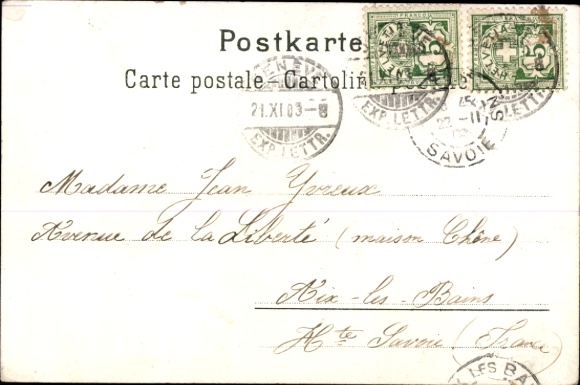 Postkarte
Carte postale - Cartolin
GENÈVE
21.XI 03-8
EXP. LETTR.
HELVETIA
FRANCO
5
HELVETIA
5
EXP. LETTR.
LETTR.
22 -11
SAVOIE
Madame Jean Yvreux
Avenue de la Liberté (maison Chêne)
Aix-les-Bains
Hte Savoie (France)
LES BA